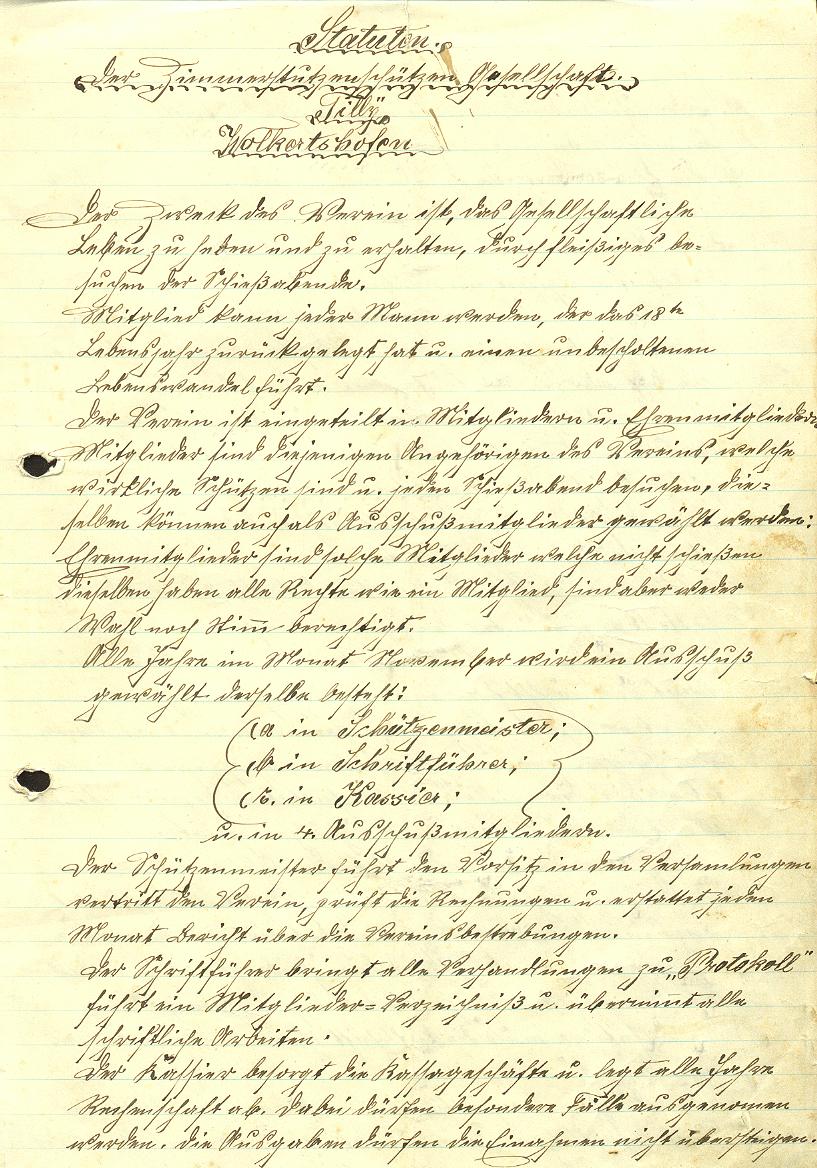 Statuten.
Der Zimmerstutzenschützen Gesellschaft.
Tilly
Wolkertshofen
Der Zweck des Verein ist, das Gesellschaftliche
Leben zu heben und zu erhalten, durch fleißiges be=
suchen der Schießabende.
Mitglied kann jeder Mann werden, der das 18te
Lebensjahr zurückgelegt hat u. einen unbescholtenen
Lebenswandel führt.
Der Verein ist eingeteilt in Mitgliedern u. Ehrenmitgliedern
Mitglieder sind diejenigen Angehörigen des Vereins, welche
wirkliche Schützen sind u. jeden Schießabend besuchen, die=
selben können auch als Ausschußmitglieder gewählt werden:
Ehrenmitglieder sind solche Mitglieder welche nicht schießen
dieselben haben alle Rechte wie ein Mitglied, sind aber weder
Wahl noch Stim̅ berechtigt.
Alle Jahre im Monat November wird ein Ausschuß
gewählt derselbe besteht:
(a in Schützenmeister;
(b in Schriftführer;
(c. in Kassier;
u. in 4. Ausschußmitgliedern.
Der Schützenmeister führt den Vorsitz in den Versamlungen
vertritt den Verein, prüft die Rechnungen u. erstattet jeden
Monat Bericht über die Vereinsbestrebungen.
Der Schriftführer bringt alle Verhandlungen zu „Protokoll"
führt ein Mitglieder=Verzeichniß u. übernimt alle
schriftliche Arbeiten.
Der Kassier besorgt die Kassageschäfte u. legt alle Jahre
Rechenschaft ab. Dabei dürfen besondere Fälle ausgenomen
werden. Die Ausgaben dürfen die Einahmen nicht übersteigen.